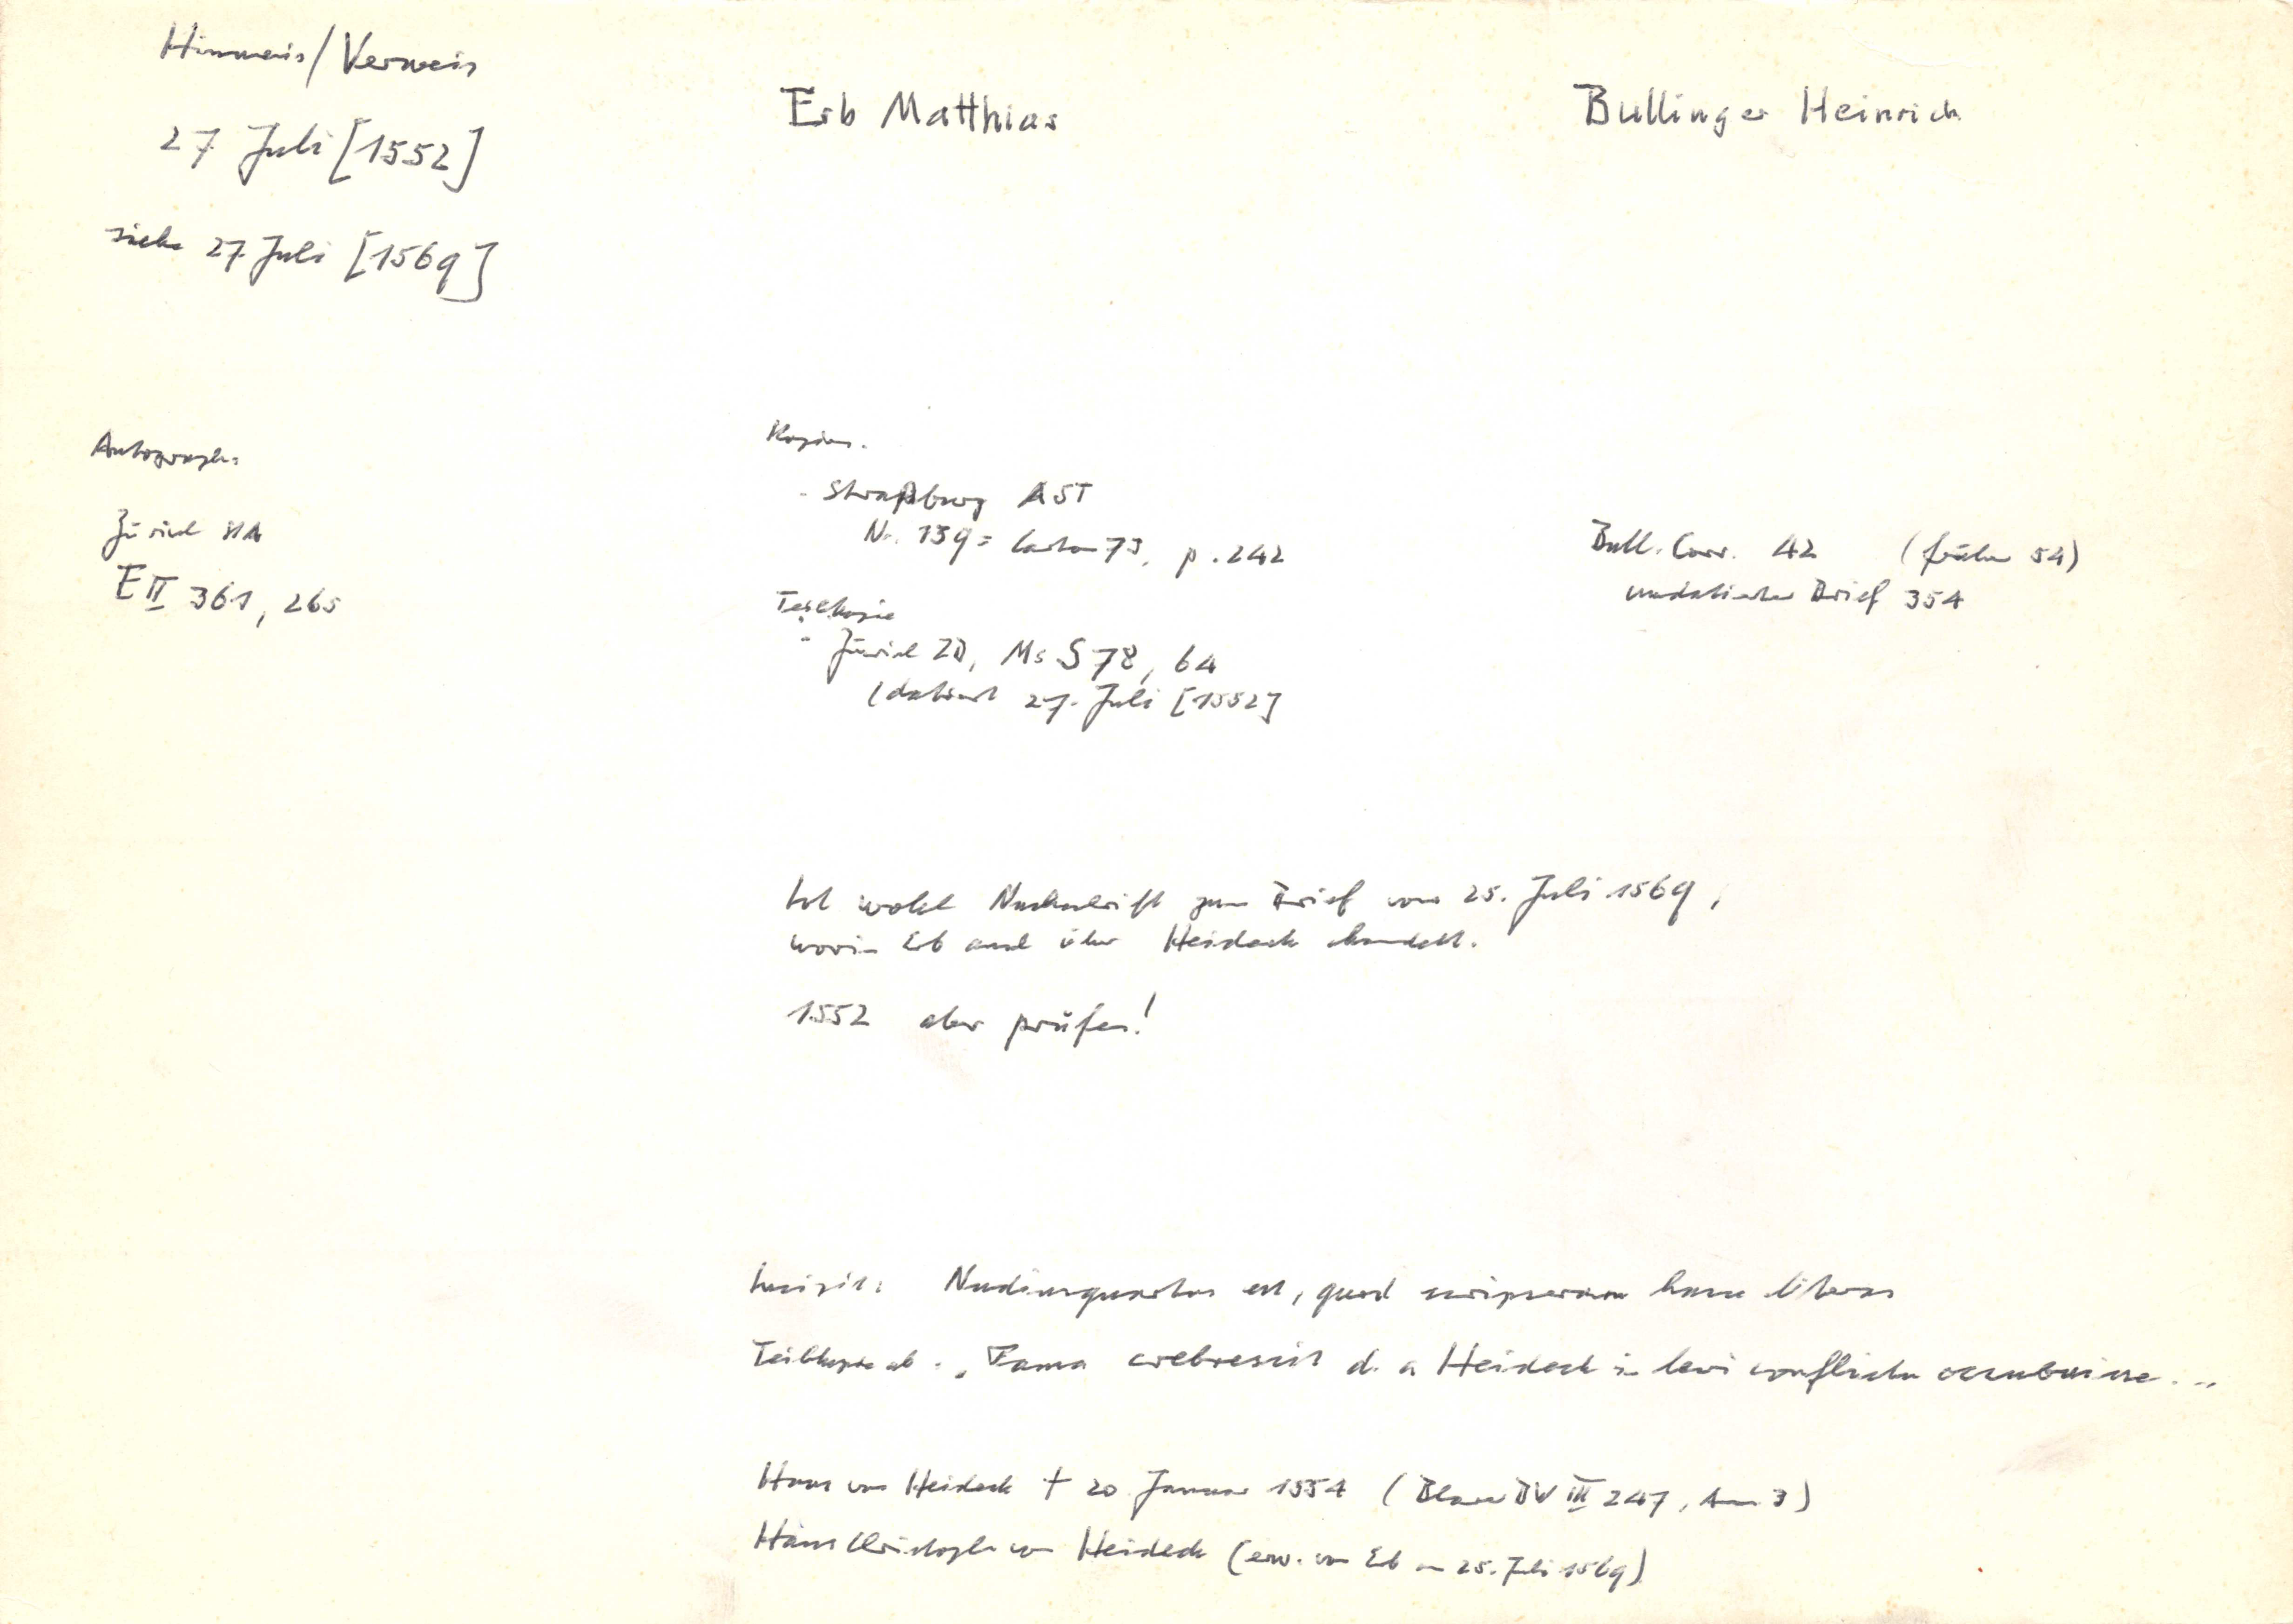 Hinweis/Verweis
27 Juli [1552]
siehe 27. Juli [1569]
Erb Matthias
Bullinger Heinrich
Autograph:
Zürich StA
E II 361, 265
Kopien.
- Straßburg AST
Nr. 139 = Carton 73, p. 242
Teilkopie
- Zürich ZB, Ms S 78, 64
(datiert 27. Juli [1552]
Bull. Corr. 42 (früher 54)
undatierter Brief 354
Ist wohl Nachschrift zum Brief vom 25. Juli 1569,
worin Erb auch über Heideck handelt.
1552 aber prüfen!
Incipit: Nudiusquartus est, quod scripseram hasce literas
Teilkopie ab: „Fama crebrescit d. a Heideck in levi conflictu occubuisse...
Hans von Heideck † 20. Januar 1554 (Blarer BW III 247, Anm 3)
Hans Christoph von Heideck (erw. von Erb am 25. Juli 1569)